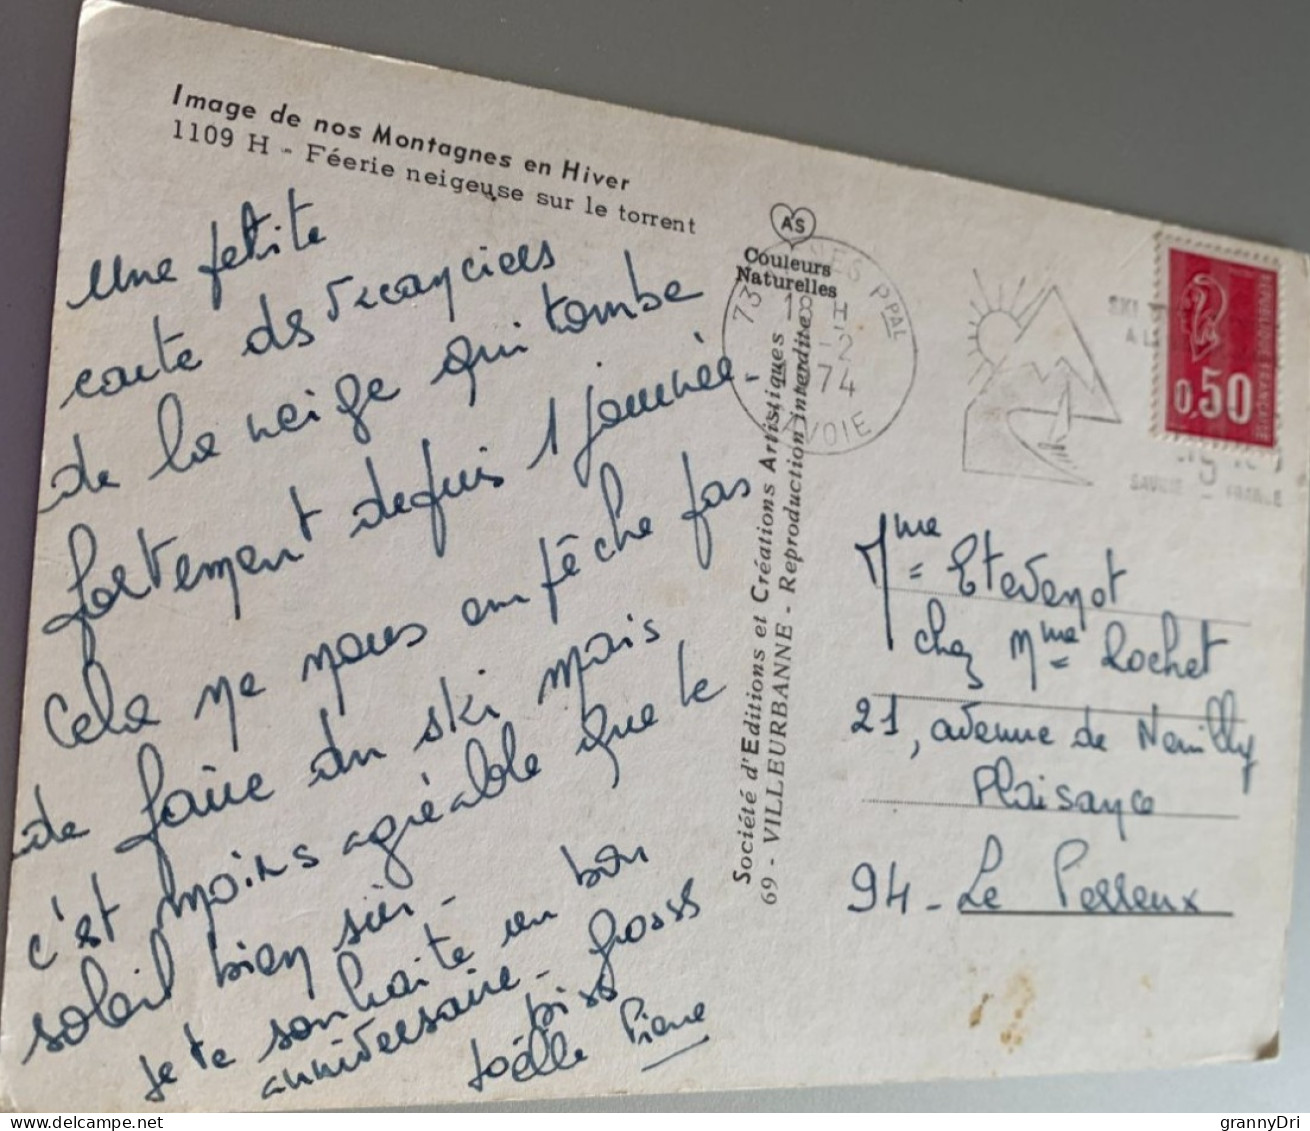 Image de nos Montagnes en Hiver
1109 H - Féerie neigeuse sur le torrent
Une petite
carte ds
de la neige qui tombe
fortement depuis 1 journée.
Cela ne nous empêche pas
de faire du ski mais
c'est moins agréable que le
soleil bien sûr.
Je te souhaite un bon
anniversaire. gross
biss
Joëlle Pierre
AS
Couleurs
Naturelles
Société d'Editions et Créations Artistiques
69 - VILLEURBANNE - Reproduction interdite
73 PPAL
18 H
-2
1974
SAVOIE
SKI
A L
SAVOIE - FRANCE
REPUBLIQUE FRANÇAISE
0,50
Mme Etevenot
chez Mme Rochet
21, avenue de Neuilly
Plaisance
94 - Le Perreux
grannyDri